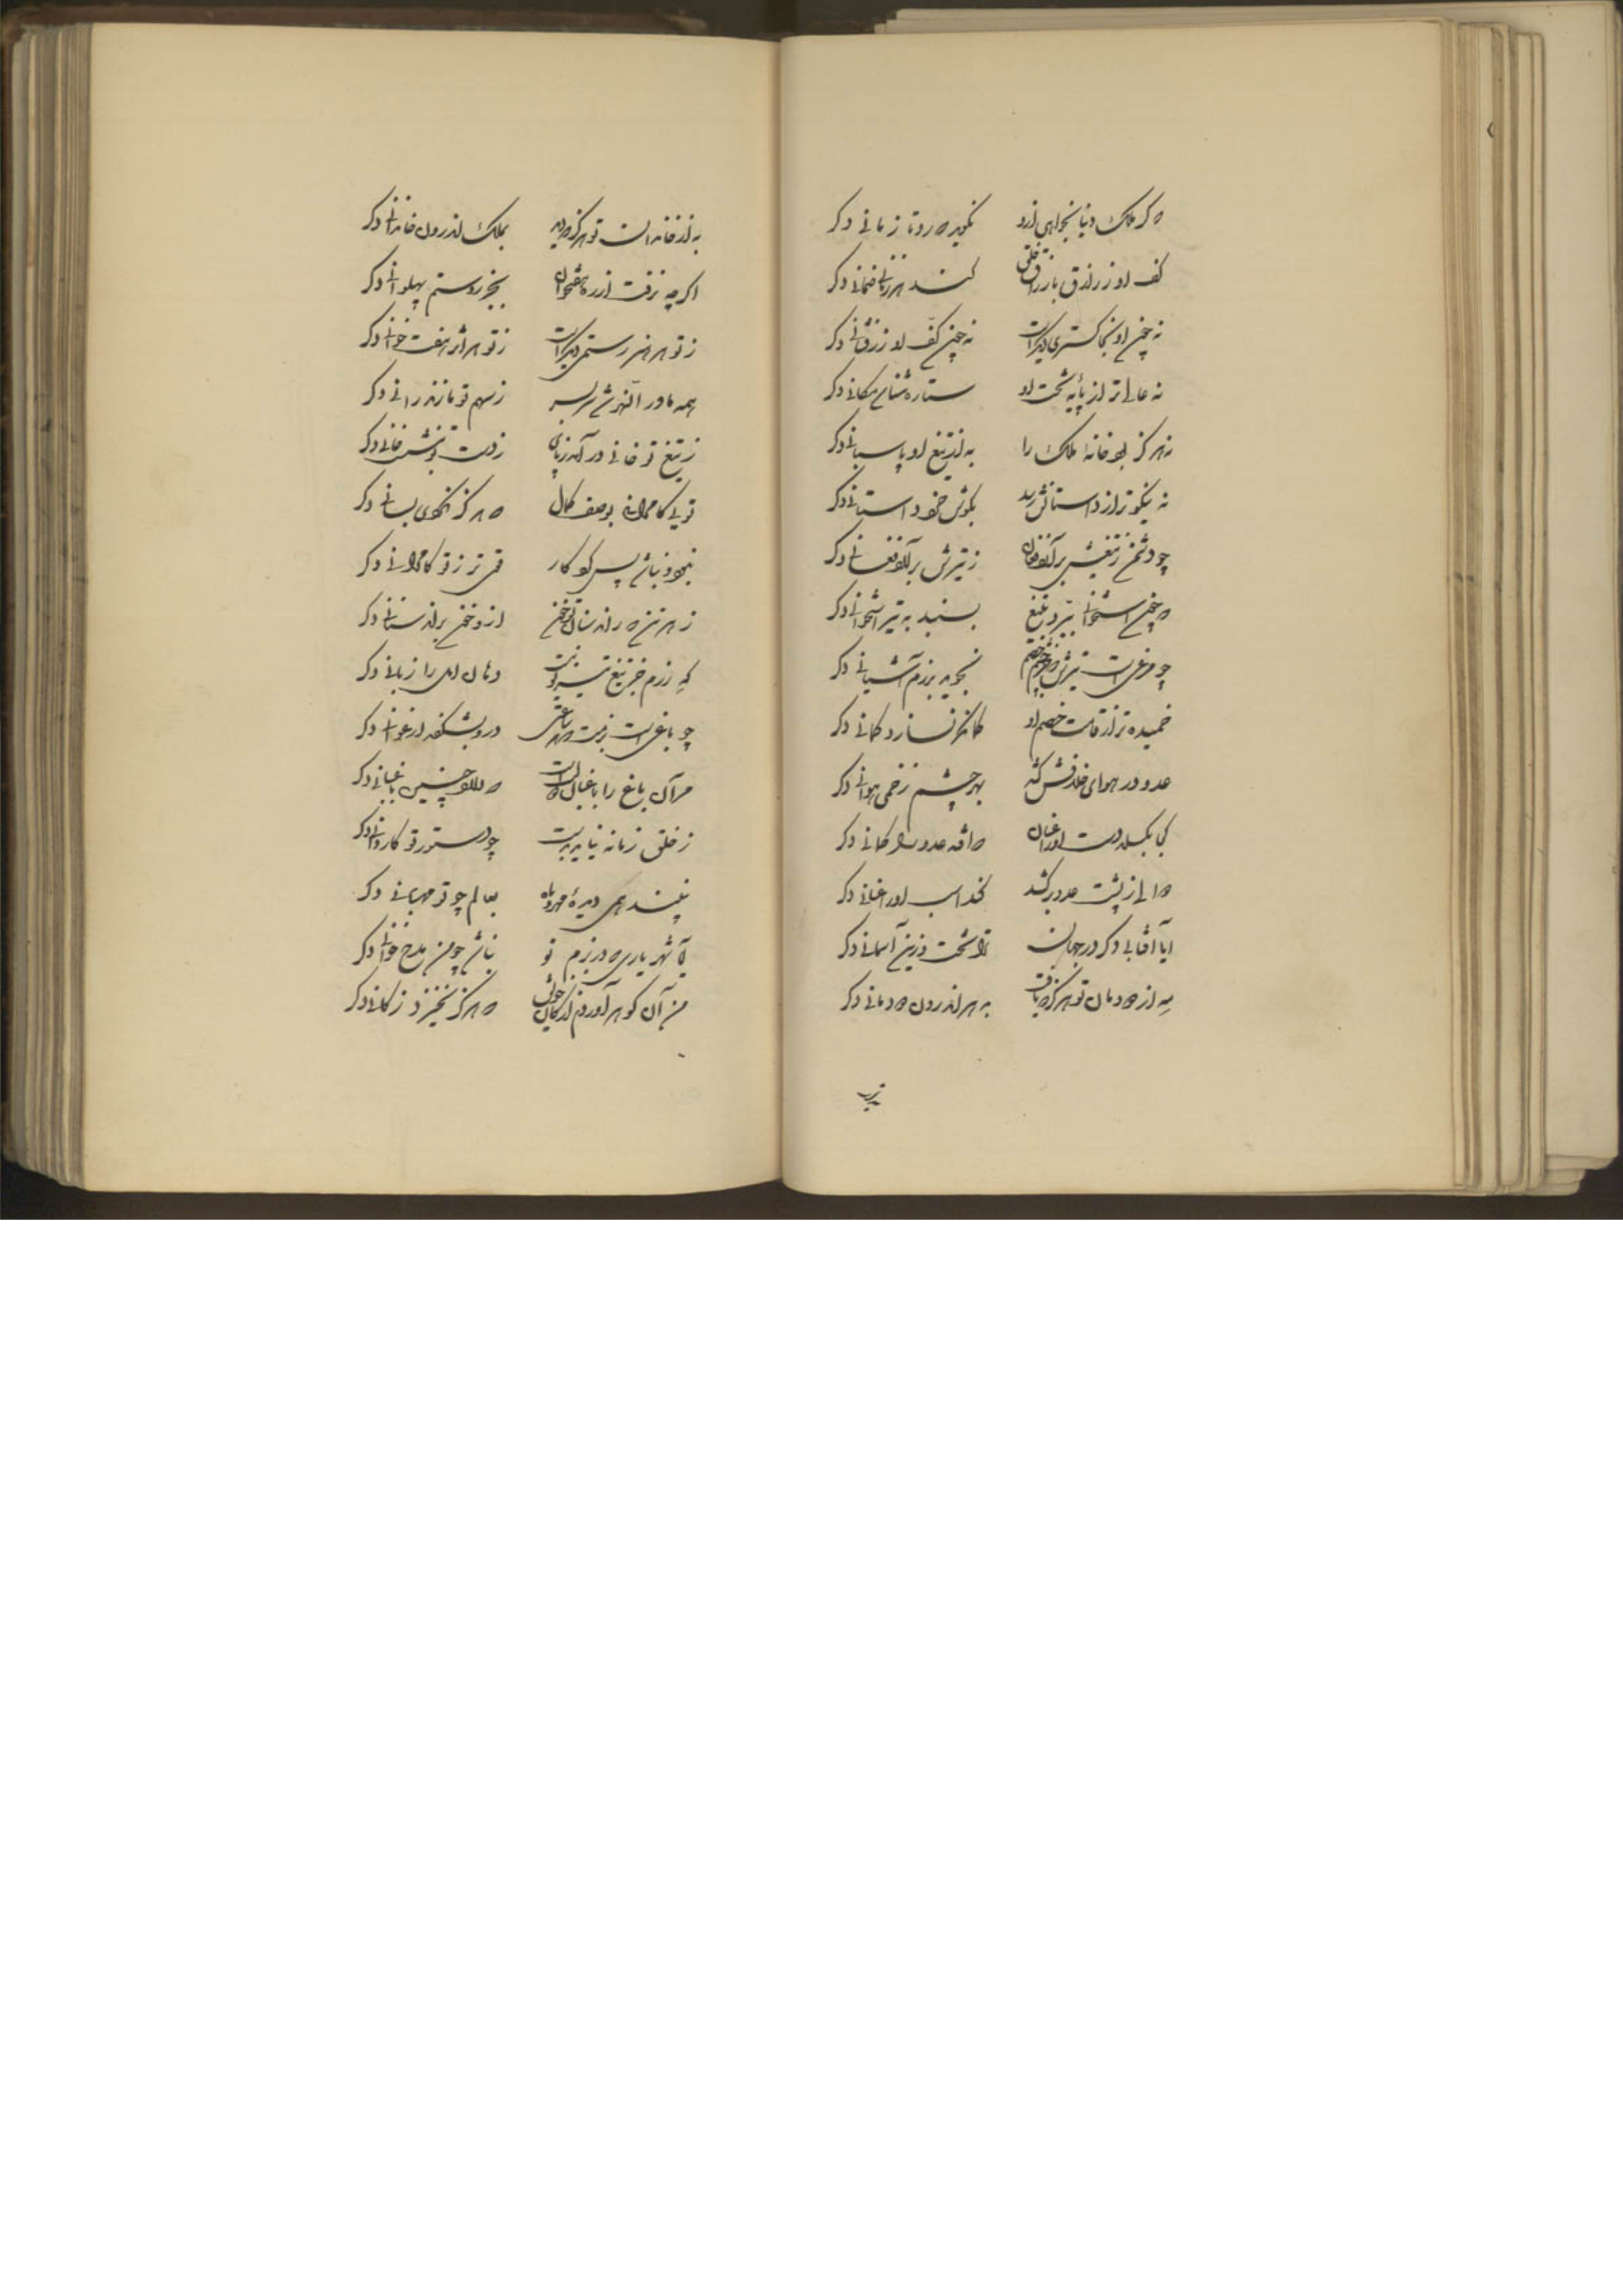 که گر ملک دنیا بخواهی ازو نگوید که رو تا زمانی دگر
کف او ز رزاق بارزاق خلق کند هر زمانی ضمانی دگر
نه چون او سخا گستری دیگر است نه چون کف او زرفشانی دگر
نه عالی‌تر از پایه تخت او ستاره‌شناس مکانی دگر
نه هرگز بود خانه ملک را به از تیغ او پاسبانی دگر
نه نیکوتر از داستانش رسد بگوش خرد داستانی دگر
چو دشمن ز تیغش برآرد فغان ز تیرش برآرد فغانی دگر
که چون استخوان بترد تیغ بسنبد به تیر استخوانی دگر
چو مرغی است تیرش که جز چشم خصم نجوید برزم آشیانی دگر
خمیده‌تر از قامت خصم او کمانگر نسازد کمانی دگر
عدو در هوای خدنگش کند بهر چشم زخمی هوانی دگر
کجا بگسلد دست او را عنان که افتد عدو را گمانی دگر
دوالی ز پشت عدو برکشد کند اسب او را عنانی دگر
ایا آفتابی دگر در جهان ترا تخت زرین آسمانی دگر
به از دودمان تو هرگز نیافت به هر اندرون دودمانی دگر
به از خاندانت تو هرگز ندید بملک اندرون خاندانی دگر
اگرچه نرفت از ره هفتخوان بجز روستم پهلوانی دگر
ز تو هر هنر رستمی دیگر است ز تو هر اثر هفت خوانی دگر
همه ماورالنهر شد سربسر ز سهم تو مازندرانی دگر
ز تیغ تو خانی درآمد ز پای ز دست تو بنشست خانی دگر
تویی کامران بوصف کمال که هرگز نگنجد بسانی دگر
نبود و نباشد پس کردگار قوی‌تر ز تو کامرانی دگر
ز هر تن که راند سنان تو خون از و خون براند سنانی دگر
گه رزم جز تیغ تیز تو نیست دهان اجل را زبانی دگر
چو باغی است رزمت که هر ساعتی درو بشکفد ارغوانی دگر
مر آن باغ را باغبان است که دارد چنین باغبانی دگر
ز خلق زمانه نیاید بدست چو دستور تو کاردانی دگر
نبیند همی دیده مهر و ماه بعالم چو تو مهربانی دگر
الا شهریاری که در بزم تو نباشد چو من مدح خوانی دگر
من آن گوهر آوردم از کان جوی که هرگز نخیزد ز کانی دگر